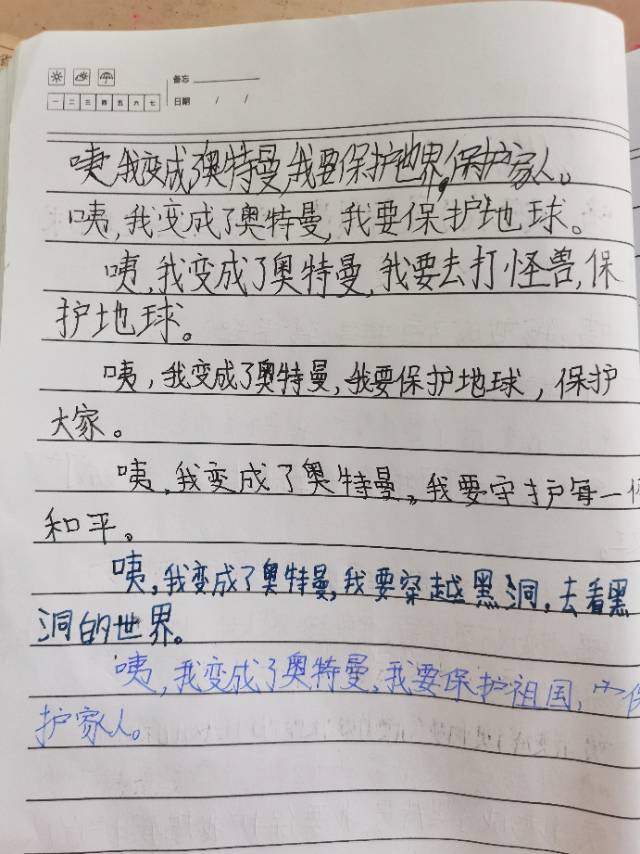 备忘
一 二 三 四 五 六 七 日期 / /
咦我变成了奥特曼,我要保护地界,保护家人。
咦,我变成了奥特曼,我要保护地球。
咦,我变成了奥特曼,我要去打怪兽,保
护地球。
咦,我变成了奥特曼,我要保护地球,保护
大家。
咦,我变成了奥特曼。我要守护每一
和平。
咦,我变成了奥特曼,我要穿越黑洞,去看黑
洞的世界。
咦,我变成了奥特曼,我要保护祖国,
护家人。